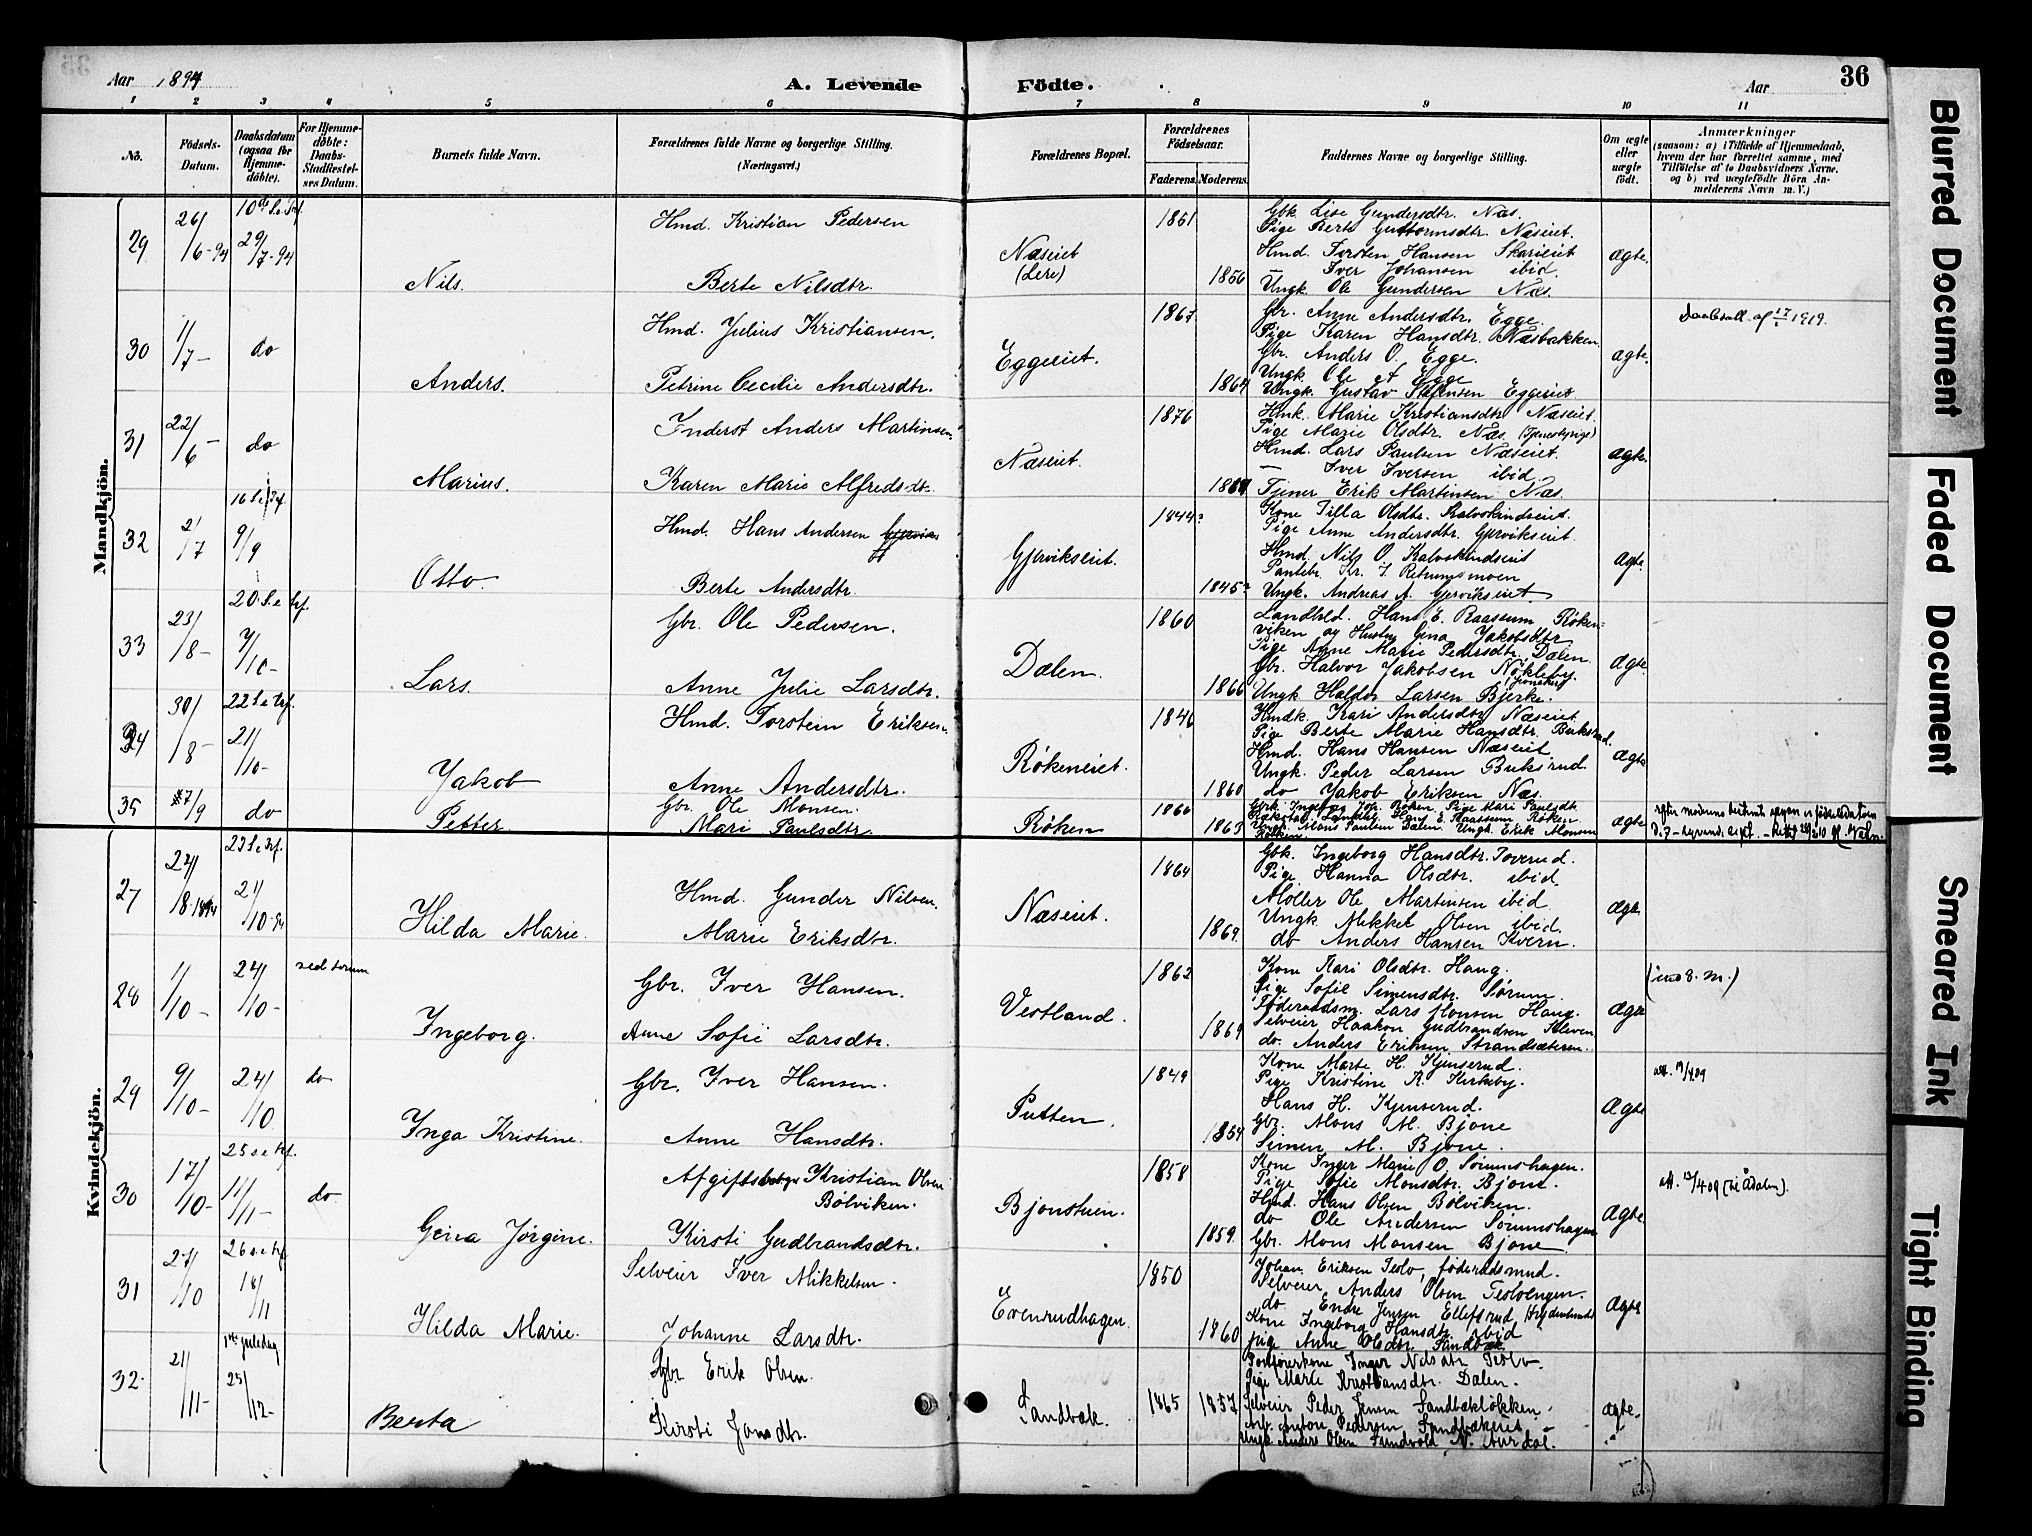 Aar 1894 A. Levende Födte. Aar 36
1 2 3 4 5 6 7 8 9 10 11
No.
Födsels-Datum.
Daabsdatum (ogsaa for Hjemme-döbte).
For Hjemme-döbte: Daabs-Stadfæstel-ses Datum.
Barnets fulde Navn.
Forældrenes fulde Navne og borgerlige Stilling. (Næringsvei.)
Forældrenes Bopæl.
Forældrenes Födselsaar.
Faderens. Moderens.
Faddernes Navne og borgerlige Stilling.
Om ægte eller uægte födt.
Anmærkninger
(saasom: a) i Tilfælde af Hjemmedaab, hvem der har forrettet samme, med Tilföielse af to Daabsvidners Navne, og b) ved uægtefödte Börn An-melderens Navn m. V.)
Mandkjön.
29 26/6-94 10de S.e.Trf. 29/7-94 Nils. Hmd. Kristian Pedersen
Berte Nilsdtr.
Næseiet (Lere) 1851 1856
Gbk. Lise Gundersdtr. Næs.
Pige Berte Guttormsdtr. Næseiet.
Hmd. Torsten Hansen Skarieiet
— Iver Johansen ibid.
Ungk. Ole Gundersen Næs.
Ægte.
30 1/7- do Anders. Hmd. Julius Kristiansen.
Petrine Cecilie Andersdtr.
Eggeeiet. 1867 1864
Gbr. Anne Andersdtr. Egge.
Pige Karen Hansdtr. Næsbakken
Gbr. Anders O. Egge.
Ungk. Ole Egge
Ungk. Gustav Steffensen Eggeeiet
ægte.
Daabsatt. af 17/ 1919.
31 22/6- do Marius. Inderst Anders Martinsen.
Karen Marie Alfredsdt.
Næseiet. 1876
Hmk. Marie Kristiansdtr Næseiet.
Pige Marie Olsdtr. Næs. (Tjenestepige)
Hmd. Lars Paulsen Næseiet.
— Iver Iversen ibid
Tjener Erik Martinsen Næs.
ægte.
32 2/7 16 S.e.Trf 9/9 Otto. Hmd. Hans Andersen
Berte Andersdtr.
Gjervikseiet. 1844? 1845?
Kone Tilla Olsdtr. Kalvskindseiet.
Pige Anne Andersdtr. Gjervikseiet.
Hmd. Nils O. Kalvskindseiet
Pantebr. Kr. J. Retrumsmoen
Ungk. Andreas A. Gjervikseiet.
Ægte.
33 23/8- 20 S.e trf. 7/10- Lars. Gbr. Ole Pedersen.
Anne Julie Larsdtr.
Dælen. 1860 1866
Landhld. Hans E. Raassum Røken=
viken og Hustru Gina Yakobsdtr
Pige Anne Marie Pedersdtr. Dælen
Gbr. Halvor Jakobsen Nøkleby.
Ungk. Haldor Larsen Bjerke.
Ægte
34 30/8- 22 S.e trf. 21/10- Yakob Hmd. Torstein Eriksen
Anne Andersdtr.
Røkeneiet. 1846 1860
Hmdk. Kari Andersdtr. Næseiet
Pige Berte Marie Hansdtr. Buksrud.
Hmd. Hans Hansen Næseiet
Ungk. Peder Larsen Buksrud.
do Yakob Eriksen Næs.
Ægte
35 27/9 do Petter. Gbr. Ole Monsen.
Mari Paulsdtr
Røken 1866 1863
Gbk. Ingeborg Joh. Røken. Pige Mari Paulsdt.
Landhlr. Hans E. Raassum Røken
Ungk. Mons Paulsen Dælen. Ungk. Erik Monsen
Røken.
ægte
Kvindekjön.
27 24/8 1894 23 S.e trf. 21/10-94 Hilda Marie. Hmd. Gunder Nilsen.
Marie Eriksdtr.
Næseiet. 1864 1869.
Gbk. Ingeborg Hansdtr. Toverud.
Pige Hanna Olsdtr. ibid.
Møller Ole Martinsen ibid
Ungk. Mikkel Olsen ibid.
do Anders Hansen Kvern.
Ægte
28 1/10- 24/10- ved Sørum Ingeborg. Gbr. Iver Hansen.
Anne Sofie Larsdtr.
Vestland. 1862 1869
Kone Kari Olsdtr. Haug.
Pige Sofie Simensdtr. Sørum.
Føderaadsm. Lars Monsen Haug.
Selveier Haakon Gudbrandsen Kleven
do. Anders Eriksen Strandsæteren.
Ægte
29 9/10- 24/10 do Ynga Kristine. Gbr. Iver Hansen.
Anne Hansdtr.
Putten. 1849 1854
Kone Marte H. Kjenserud.
Pige Kristine A. Kirkeby.
Hans H. Kjenserud.
Gbr. Mons M. Bjone
Simen M. Bjone.
Ægte
30 17/10- 25 s e trf. 11/11- do Gina Jørgine. Afgiftsbrugr Kristian Olsen
Bølviken.
Kirsti Gudbrandsdtr.
Bjonstuen. 1858 1859.
Kone Inger Marie O. Sørumshagen.
Pige Sofie Monsdtr. Bjone.
Hmd. Hans Olsen Bølviken.
do Ole Andersen Sørumshagen
Gbr. Mons Monsen Bjone
Ægte.
att. 13/4 09 (til Ådalen).
31 27/10 26 s e trf. 18/11 Hilda Marie. Selveier Iver Mikkelsen.
Johanne Larsdtr.
Evenrudhagen. 1850 1860
Johan Eriksen Teslo, føderaadsmnd.
Selveier Anders Olsen Tesloengen.
do. Endre Jensen Elleftrud
Kone Ingeborg Hansdtr. ibid
pige Anne Olsdtr. Sandbæk.
Ægte
32. 21/11- 1ste juledag 25/12- Berta Gbr Erik Olsen.
Kirsti Jonsdtr.
Sandbæk. 1865 1857
Inger Nilsdtr Teslo.
Pige Marte Kristiansdtr. Dalen.
Selveier Peder Jensen Sandbækløkken.
Anton Pedersen Sandbækeiet
Ungk Anders Olsen Sundvold N. Aurdal.
ægte.
Blurred Document
Faded Document
Smeared Ink
Tight Binding